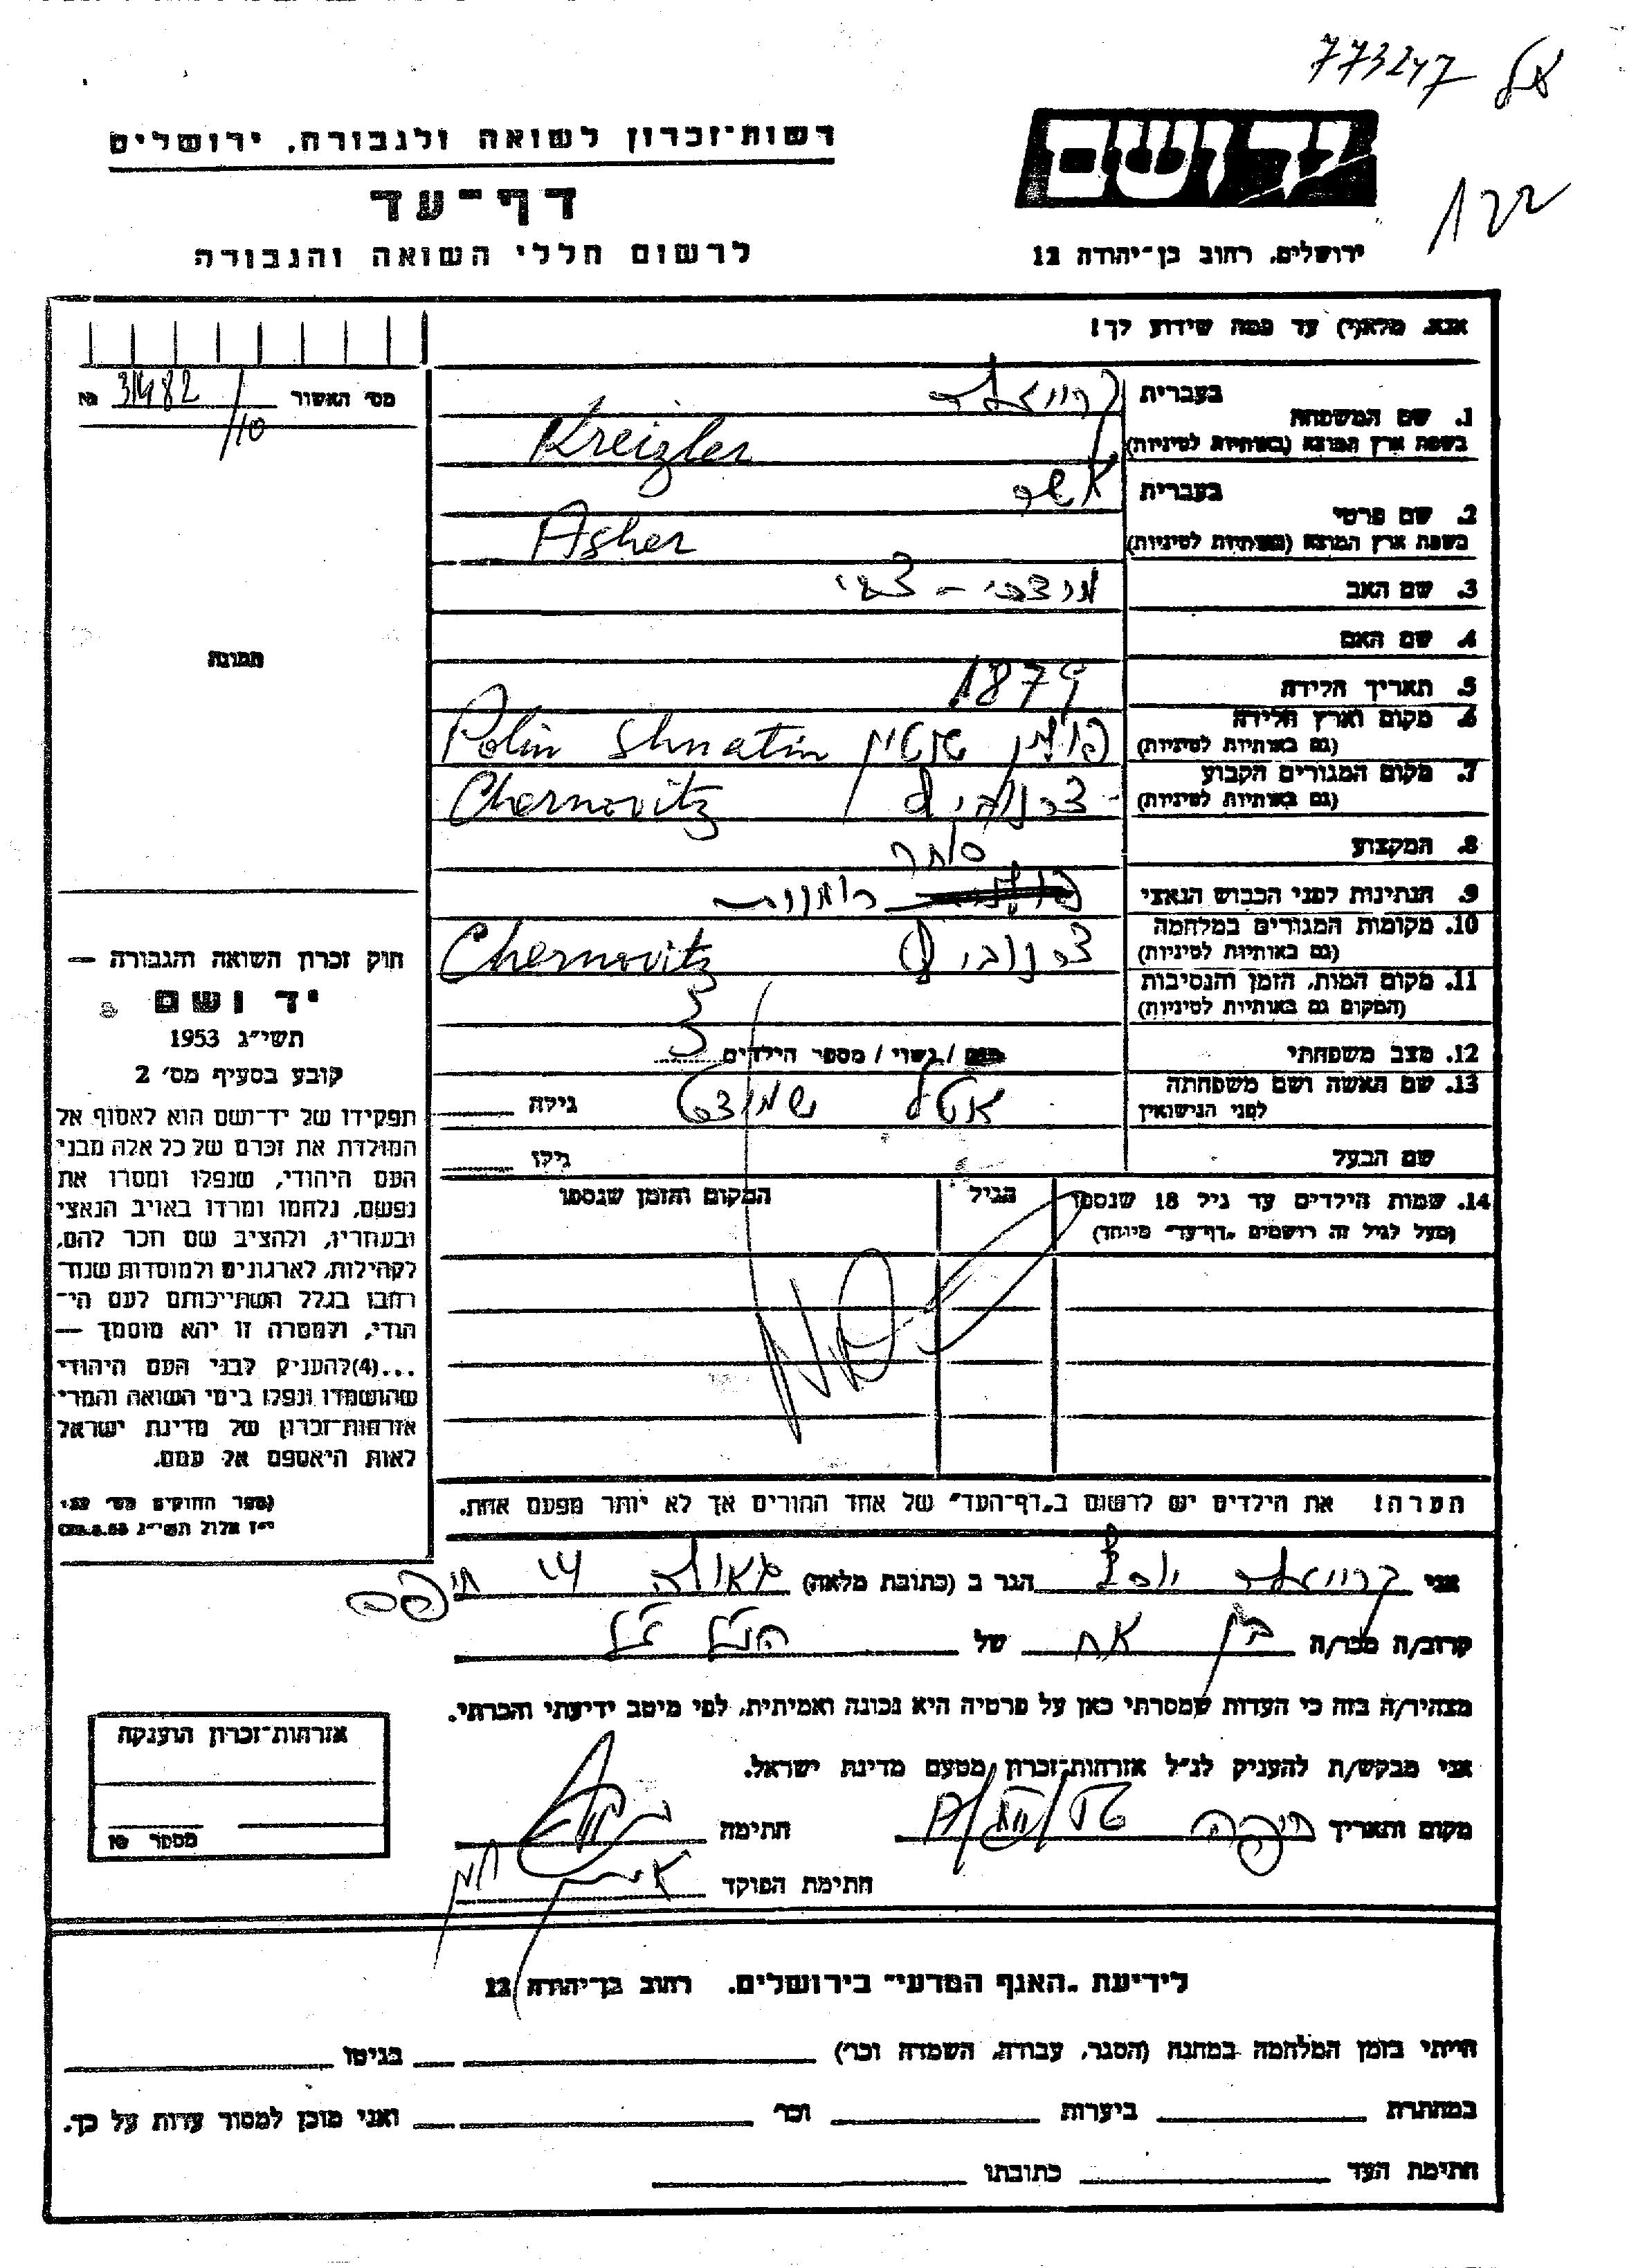 773247
רשות־זכרון לשואה ולגבורה, ירושלים
דף־עד
לרשום חללי השואה והגבורה
יד ושם
ירושלים, רחוב בן־יהודה 12
122
אנא, מלא(י) עד כמה שידוע לך!
מס׳ האשור 31482/10
1. שם המשפחה
בעברית קרייזלר
בשפת ארץ המוצא (באותיות לטיניות) Kreizler
2. שם פרטי
בעברית אשר
בשפת ארץ המוצא (באותיות לטיניות) Asher
3. שם האב מרדכי - צבי
4. שם האם
5. תאריך הלידה 1879
6. מקום וארץ הלידה
(גם באותיות לטיניות) Polin Shnatin פולין
7. מקום המגורים הקבוע
(גם באותיות לטיניות) Chernovitz צרנוביץ
8. המקצוע סוחר
9. הנתינות לפני הכבוש הנאצי רומנית
10. מקומות המגורים במלחמה
(גם באותיות לטיניות) Chernovitz צרנוביץ
11. מקום המות, הזמן והנסיבות
(המקום גם באותיות לטיניות)
12. מצב משפחתי רווק / נשוי / מספר הילדים 3
13. שם האשה ושם משפחתה
לפני הנישואין אטל גילה
שם הבעל גילו
14. שמות הילדים עד גיל 18 שנספו הגיל המקום והזמן שנספו
(מעל לגיל זה רושמים „דף־עד״ מיוחד)
תמונה
חוק זכרון השואה והגבורה —
יד ושם
תשי״ג 1953
קובע בסעיף מס׳ 2
תפקידו של יד־ושם הוא לאסוף אל
המולדת את זכרם של כל אלה מבני
העם היהודי, שנפלו ומסרו את
נפשם, נלחמו ומרדו באויב הנאצי
ובעוזריו, ולהציב שם וזכר להם,
לקהילות, לארגונים ולמוסדות שנח־
רבו בגלל השתייכותם לעם הי־
הודי, ולמטרה זו יהא מוסמך —
...(4)להעניק לבני העם היהודי
שהושמדו ונפלו בימי השואה והמרי
אזרחות־זכרון של מדינת ישראל
לאות היאספם אל עמם.
(ספר החוקים מס׳ 132
י״ז אלול תשי״ג 28.8.53)
הערה! את הילדים יש לרשום ב„דף־העד״ של אחד ההורים אך לא יותר מפעם אחת.
אני קרייזלר יוסף הגר ב (כתובת מלאה) גאולה חיפה
קרוב/ה מכר/ה בן אח של הנ״ל
מצהיר/ה בזה כי העדות שמסרתי כאן על פרטיה היא נכונה ואמיתית, לפי מיטב ידיעתי והכרתי.
אני מבקש/ת להעניק לנ״ל אזרחות־זכרון מטעם מדינת ישראל.
מקום ותאריך חיפה חתימה
חתימת הפוקד
אזרחות־זכרון הוענקה
מספר
לידיעת „האגף המדעי״ בירושלים. רחוב בן־יהודה 12
הייתי בזמן המלחמה במחנה (הסגר, עבודה, השמדה וכו׳) בגיטו
במחתרת ביערות וכו׳ ואני מוכן למסור עדות על כך.
חתימת העד כתובתו